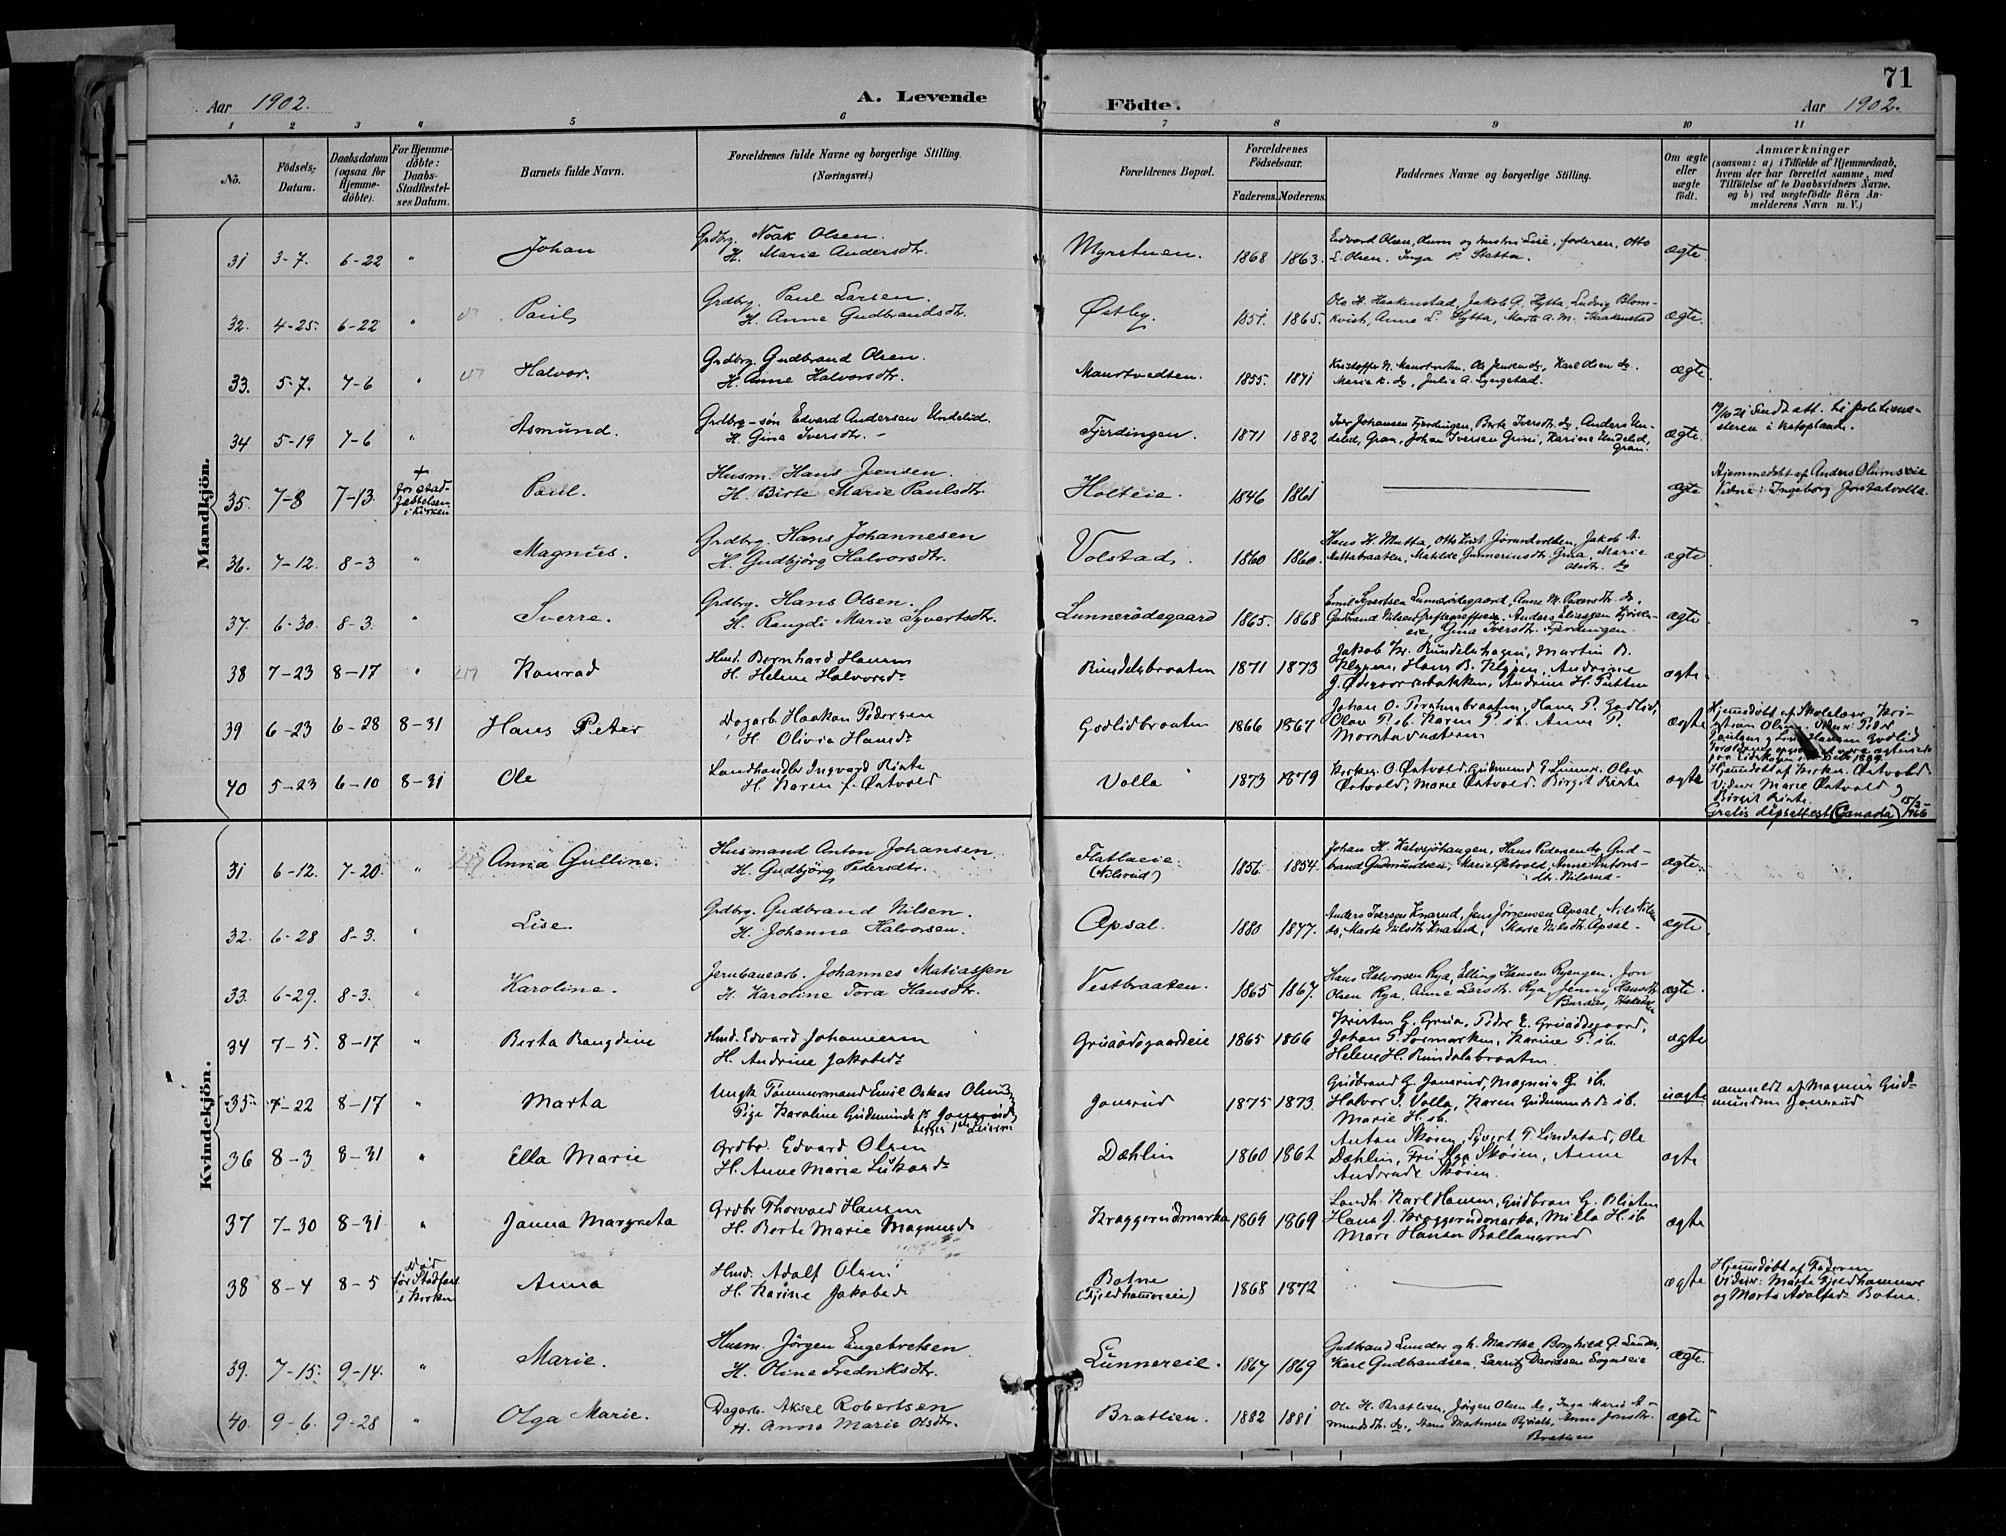 71
Aar 1902. A. Levende Födte. Aar 1902.
1 2 3 4 5 6 7 8 9 10 11
No. Födsels-Datum. Daabsdatum (ogsaa for Hjemme-döbte). For Hjemme-döbte: Daabs-Stadfæstel-ses Datum. Barnets fulde Navn. Forældrenes fulde Navne og borgerlige Stilling. (Næringsvei.) Forældrenes Bopæl. Forældrenes Födselsaar. Faderens. Moderens. Faddernes Navne og borgerlige Stilling. Om ægte eller uægte födt. Anmærkninger (saasom: a) i Tilfælde af Hjemmedaab, hvem der har forrettet samme, med Tilföielse af to Daabsvidners Navne, og b) ved uægtefödte Börn An-melderens Navn m. V.)
Mandkjön.
31 3-7. 6-22 " Johan Grdbr. Noak Olsen. H. Marie Andersdtr. Myrstuen. 1868 1863. Edvard Olsen, og hustru Lise, faderen, Otto L. Olsen. Inga P. ægte.
32. 4-25. 6-22 " Paul Grdbr. Paul Larsen. H. Anne Gudbrandsdtr. Østby. 1851. 1865. Ole H. Haakenstad, Jakob G. Hytta, Ludvig Blom-kvist, Anne L. Hytta, Marte A. M. Haakenstad ægte.
33. 5-7. 7-6 " Halvor. Grdbr. Gudbrand Olsen. H. Anne Halvorsdtr. 1855. 1871 Kristoffer N. Ole Jensen do, Karl Olsen do. Marie K. do, Julie A. Lyngstad. ægte
34 5-19 7-6 " Asmund. Grdbr-søn Edvard Andersen Undelid. H. Gina Iversdtr. Fjerdingen. 1871 1882 Iver Johansen Fjerdingen, Berte Iversdtr. do, Anders Un-delid, Gran, Johan Iversen Grini, Karine Undelid, Gran. ægte. 19/10 21 Sendt att. til politime-steren i
35. 7-8 7-13. + før stad-fæstelsen i kirken Paul. Husm. Hans Jensen. H. Birte Marie Paulsdtr. Holteie. 1846 1861 ægte Hjemmedøbt af Anders Vidne: Ingeborg
36. 7-12. 8-3 " Magnus. Grdbr. Hans Johannesen H. Gudbjörg Halvorsdtr. Volstad. 1860 1860. Hans H. Mutta, Otto Jakob A. Matilde Gina, Marie do ægte
37. 6-30. 8-3. " Sverre. Grdbr. Hans Olsen. H. Rangdi Marie Syvertsdtr. Lunnerödegaard 1865. 1868 Emil Syvertsen Lunnerödegaard, Anne M. do. Gudbrand Nilsen Anders Eliassen Gina Iversdtr. Fjerdingen. ægte
38 7-23 8-17 " Konrad Husm. Bernhard Hansen H. Helene Halvorsdr Rundelsbraaten 1871 1873 Jakob Kr. Rundelshagen, Martin B. Klypen, Hans B. Klypen, Andrine J. Andrine H. Putten ægte
39 6-23 6-28 8-31 Hans Peter Dagarb. Haakon Pedersen H. Olivia Hansdr Godlidbraaten 1866 1867 Johan O. Hans P. Godlid, Olav P. ib. Karen P. ib. Anne P. ægte Hjemdøbt af Skolelær. Kri- Olsen. Vidner: Peder Paulsen og Hansen Godlid
40 5-23 6-10 8-31 Ole Landhandler Ingvard Rinta H. Karen f. Østvold Volla 1873 1879 Kirkes. O. Østvold, Gudmund G. Lunner, Olav Østvold, Marie Østvold. Birgit Rinta ægte Hjemdøbt af Kirkes. Østvold Vidner Marie Østvold og Birgit Rinta. Gratis dåpsattest (Canada) 15/2-1966
Kvindekjön.
31 6-12. 7-20. " Anna Gulline. Husmand Anton Johansen H. Gudbjörg Pedersdtr. Flatlaeie. (Nilsrud) 1856. 1854. Johan H. Kalvsjöhaugen, Hans Pedersen do, Gud-brand Gudmundsen, Marie Østvold, Anne Antons-dtr. Nilsrud. ægte.
32. 6-28 8-3. " Lise. Grdbr. Gudbrand Nilsen. H. Johanne Halvorsen. Apsal. 1880 1877. Anders Iversen Knarud, Jens Jörgensen Apsal, Nils Nilsen do, Marte Nilsdtr. Knarud, Marie Nilsdtr. Apsal. ægte
33. 6-29. 8-3. " Karoline. Jernbanearb. Johannes Matiassen H. Karoline Tora Hansdtr. Vestbraaten. 1865 1867. Hans Halvorsen Rya, Elling Hansen Ryengen, Jon Olsen Rya, Anne Larsdtr. Rya, Jenny Hansdtr. ægte.
34 7-5. 8-17 " Berta Rangdine Husm. Edvard Johannesen H. Andrine Jakobsdr Gruaödegaardeie 1865 1866 Kristen G. Grua, Peder E. Gruaödegaard, Johan P. Sormarken, Karine P. ib. Helene H. Rundelsbraaten. ægte
35 7-22 8-17 " Marta Ungk. Tømmermand Emil Oskar Olsen Pige Karoline Gudmundsdr Jonsrud begges 1ste Leiermaal Jonsrud 1875 1873. Gudbrand G. Jonsrud, Magnus G. ib. Halvor J. Volla, Karen Gudmundsdr ib. Marie H. ib. uægte anmeldt af Magnus Gud-mundsen Jonsrud
36 8-3 8-31 " Ella Marie Grdbr. Edvard Olsen H. Anne Marie Dæhlin 1860 1862 Anton Skøien, Syvert T. Lindstad, Ole Dæhlin, Fru Skøien, Anne Andersdr Skøien. ægte
37 7-30 8-31 " Janna Margreta Grdbr Thorvald Hansen H. Berte Marie Magnusdr Kraggerudmarka 1869 1869 Landh. Karl Hansen, Gudbran G. Hans J. Kraggerudmarka, Milla H. ib Mari Hansen Ballangrud ægte
38 8-4 8-5 Død før Stadfæst. i Kirken Anna Husm. Adolf Olsen H. Karine Jakobsdr Botne (Fjeldhammereie) 1868 1872 ægte Hjemdøbt af Faderen Vidner: Marte Fjeldhammer og Marta Adolfsdr Botne.
39. 7-15. 9-14. " Marie. Husm. Jörgen Engebretsen H. Oline Fredriksdtr. Lunnereie. 1867 1869 Gudbrand Lunder og h. Marthe Borghild G. Lunder, Karl Gudbrandsen, Lauritz Davidsen ægte.
40. 9-6. 9-28 " Olga Marie. Dagarb. Aksel Robertsen H. Anna Marie Olsdtr. Bratlien. 1882 1881 Ole H. Bratlien, Jörgen Olsen do, Inga Marie A-mundsdtr. do, Hans Martinsen Anne Jonsdtr. Bratlien ægte